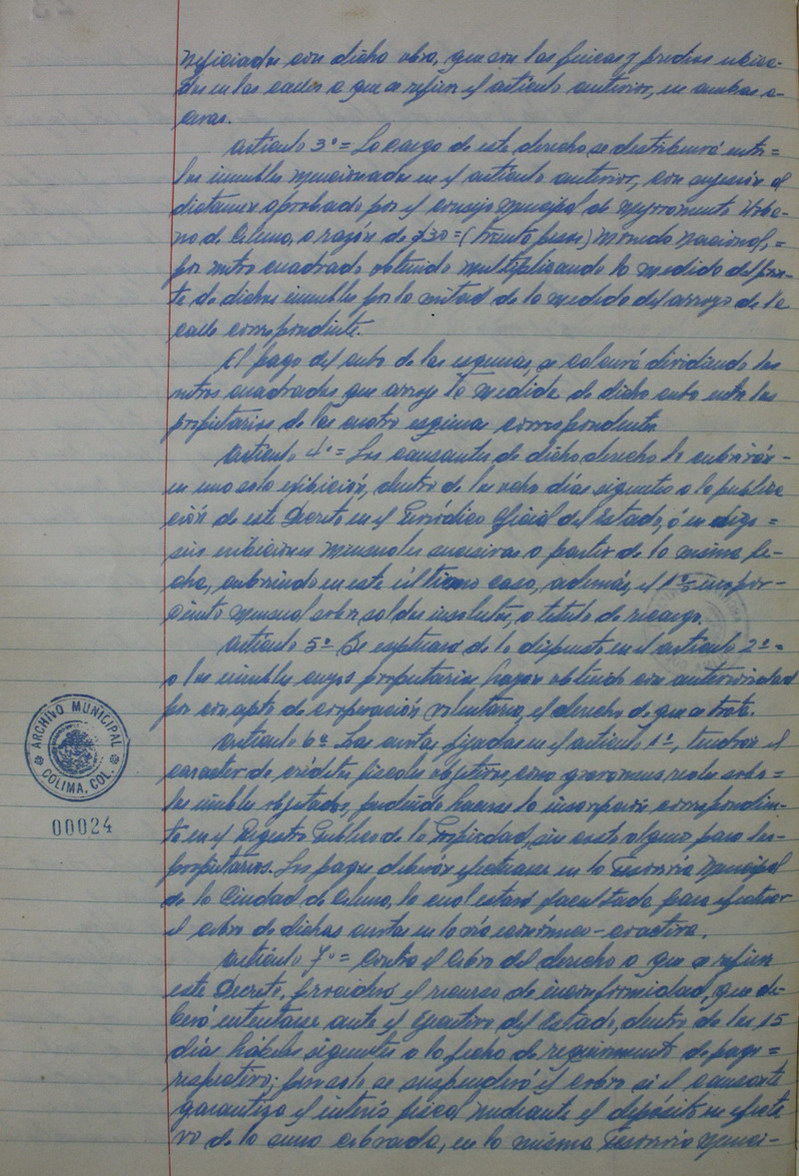 neficiados con dicha obra, que son las fincas y predios ubica-
dos en las calles a que se refiere el artículo anterior, en ambas a-
ceras.
Artículo 3º = La carga de este derecho, se distribuirá entre =
los inmuebles mencionados en el artículo anterior, con sujeción al
dictamen aprobado por el consejo Municipal de Mejoramiento Urba-
no de Colima, a razón de $30= (treinta pesos) Moneda Nacional, =
por metro cuadrado obtenido multiplicando la medida del fren-
te de dichos inmuebles por la mitad de la medida del arroyo de la
calle correspondiente.
El pago del cubo de las esquinas, se calculará dividiendo los
metros cuadrados que arroje la medida de dicho cubo entre los
propietarios de las cuatro esquinas correspondientes.
Artículo 4º = Los causantes de dicho derecho lo cubrirán -
en una sola exhibición, dentro de los ocho días siguientes a la publica
ción de este Decreto en el Periódico Oficial del Estado, ó en dieci =
seis exhibiciones mensuales sucesivas a partir de la misma fe-
cha, cubriendo en este último caso, además, el por-
ciento mensual sobre saldos insolutos, a título de recargo.
Artículo 5º Se exceptúan de lo dispuesto en el artículo 2º =
a los inmuebles cuyos propietarios hayan obtenido con anterioridad
por concepto de cooperación voluntaria, el derecho de que se trata.
Artículo 6º Las cuotas fijadas en el artículo 1º, tendrán el
caracter de créditos fiscales objetivos, como gravámenes reales sobre =
los inmuebles afectados, pudiendo hacerse la inscripción correspondien-
te en el Registro Público de la Propiedad, sin costo alguno para los -
propietarios. Los pagos deberán efectuarse en la Tesorería Municipal
de la Ciudad de Colima, la cual estará facultada para efectuar
el cobro de dichas cuotas en la vía económico-coactiva.
Artículo 7º = Contra el Cobro del derecho a que se refiere
este Decreto, procederá el recurso de inconformidad, que de-
berá intentarse ante el Ejecutivo del Estado, dentro de los 15
días hábiles siguientes a la fecha de requerimiento de pago =
respectivo; pero solo se suspenderá el cobro si el causante
garantiza el interés fiscal mediante el depósito en efecti
vo de la suma cobrada, en la misma Tesorería Munici-
ARCHIVO MUNICIPAL
COLIMA, COL.
00024